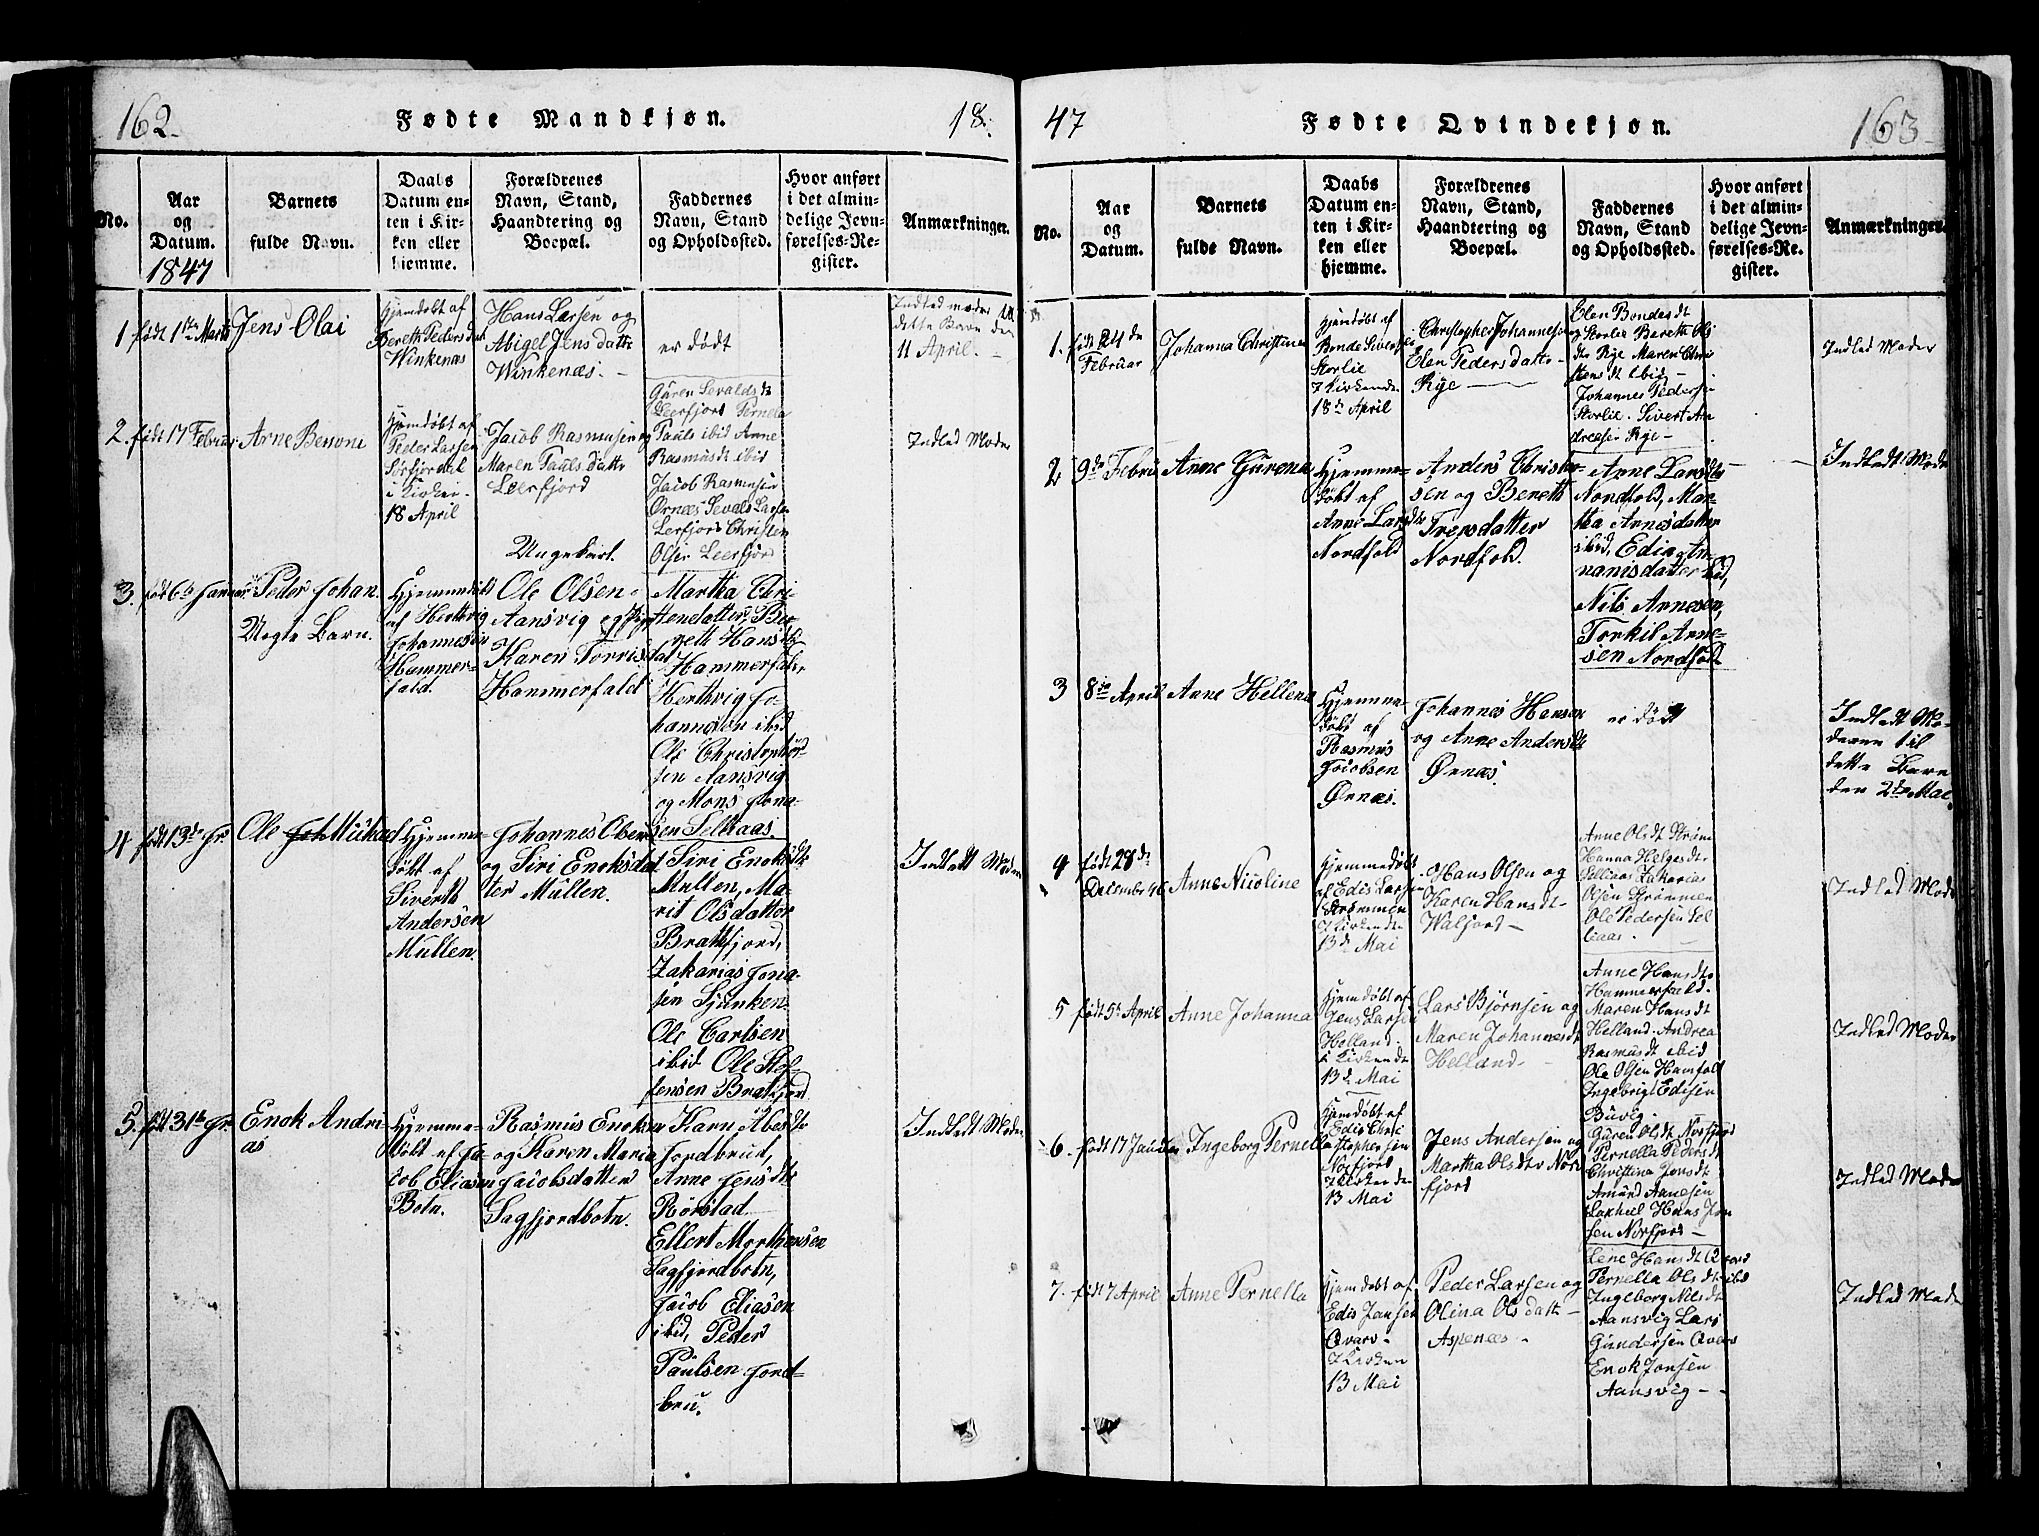 162.
Fødte Mandkjøn.
18.
No.
Aar
og
Datum.
1847
Barnets
fulde Navn.
Daabs
Datum en-
ten i Kir-
ken eller
hjemme.
Forældrenes
Navn, Stand,
Haandtering og
Boepæl.
Faddernes
Navn, Stand
og Opholdssted.
Hvor anført
i det almin-
delige Jevn-
førelses-Re-
gister.
Anmærkninger.
1
født 1ste Marts
Jens Olai
Hjemdøbt af
Bereth Pedersdat
Winkenæs
Hans Larsen og
Abigel Jensdatt
Winkenæs.
er død
Indled moder til
dette Barn den
11 April.
2.
født 17 Februar
Arne Bernone
Hjemdøbt af
Peder Larsen
Sørfjorden
i Kirken
18 April
Jacob Rasmusen og
Maren Paulsdatt
Leerfjord
Guren Sevaldsdt
Leerfjord Pernela
Pauls ibid Anne
Rasmusdt ibid
Jacob Rasmusen
Ørnæs Sevald Larsen
Lerfjord Christen
Olsen Leerfjord
Indled Moder
3.
født 6te Januar
Peder Johan
Uegte Barn.
Hjemmedøbt
af Herthvig
Johannesen
Hammer-
fald.
Ungekarl.
Ole Olsen
Aansvig og Pige
Karen Torrisdat
Hammerfald
Martha Chri-
stensdatter, Be-
reth Hansdt
Hammerfald,
Herthvig Jo-
hannesen ibid
Ole Christopher-
sen Aansvig
og Mons Jona-
sen Selliaas.
4
født 13de Jr.
Ole Joh Mickal
Hjemme-
døbt af
Siverth
Andersen
Mullen.
Johannes Olsen
og Siri Enoksdat
ter Mullen.
Siri Enoksdt
Mullen, Ma-
rit Olsdatter
Brattfjord,
Zakarias Jona-
sen Sjunken
Ole Carlsen
ibid Ole Stef-
fensen Bratfjord
Indledt Moder
5.
født 31te Jr.
Enok Andri-
as
Hjemme-
døbt af Ja-
cob Eliasen
Botn.
Rasmus Enoksen
og Karen Maria
Jacobsdatter
Sagfjordbotn.
Karn Abelsdt
Jordbrud,
Anne Jensdt
Rørstad
Ellert Morthensen
Sagfjordbotn,
Jacob Eliasen
ibid, Peder
Paulsen Jord-
bru.
Indledt Moder
47
Fødte Qvindekjøn.
163
No.
Aar
og
Datum.
Barnets
fulde Navn.
Daabs
Datum en-
ten i Kir-
ken eller
hjemme.
Forældrenes
Navn, Stand,
Haandtering og
Boepæl.
Faddernes
Navn, Stand
og Opholdssted.
Hvor anført
i det almin-
delige Jevn-
førelses-Re-
gister.
Anmærkninger.
1.
født 24de
Februar
Johanna Christina
Hjemdøbt af
Bonde Siversen
Storlie
I Kirken den
18de April
Christopher Johannesen
Elen Pedersdatt
Rye
Elen Bondesdt
Storlie Bereth Ols
dtr Rye Maren Chri
stensdt ibid
Johannes Pedersen
Storlie. Sivert An
dreasen Rye
Indled Moder
2
9de Febru
Anne Gurena
Hjemme-
døbt af
Anne Larsdtr
Nordfold
Anders Christen-
sen og Bereth
Trepsdatter
Nordfold.
Anne Larsdtr
Nordfold, Mar-
tha Arnesdatter
ibid, Edia An-
nanisdatter ibid,
Nils Arnesen,
Torkil Arne-
sen Nordfold
Indledt Moder
3
8de April
Anne Hellena
Hjemme-
døbt af
Rasmus
Jacobsen
Ørnæs.
Johannes Hansen
og Anne Andersdt
Ørnæs.
er død
Indledt Mo-
deren til
dette Barn
den 2den Mai.
4
født 28de
Desember 46
Anne Nicoline
Hjemmedøbt
af Edis Larsen
Strømmen
I Kirken den
13de Mai
Hans Olsen og
Karen Hansdt
Walfjord
Anne Olsdt Strøm
Hanna Helgesdtr
Selliaas Zakarias
Olsen Strømmen
Ole Pedersen Sel
liaas.
Indled Moder
5
født 5te April
Anne Johanna
Hjemdøbt af
Jens Larsen
Helland.
i Kirken den
13de Mai
Lars Bjørnsen og
Maren Johannesdt
Helland
Anne Hansdtr
Hammerfald.
Maren Hansdt
Helland. Andrea
Rasmusdt ibid
Ole Olsen Hamfald
Ingebrigt Edisen
Buvig.
Indled Moder
6.
født 17 Januar
Ingeborg Pernella
Hjemdøbt af
Edis Chri
stophersen
Norfjord
I Kirken den
13 Mai
Jens Andersen og
Martha Olsdtr Nor
fjord
Guren Olsdt Norfjord
Pernella Pedersdt
Christina Jensdt
Amund Aanesen
Hans Jen
sen Norfjord
Indled Moder
7.
født 7 April
Anne Pernella
Hjemdøbt af
Edis Jansen
Qvarv
I Kirken
13 Mai
Peder Larsen og
Olina Olsdatt
Aspenæs
Lene Hansdt
Pernella Olsdt ibid
Ingeborg Nilsdt
Aansvig Lars
Gundersen Qvarv
Enok Jonsen
Aansvig
Indled Moder